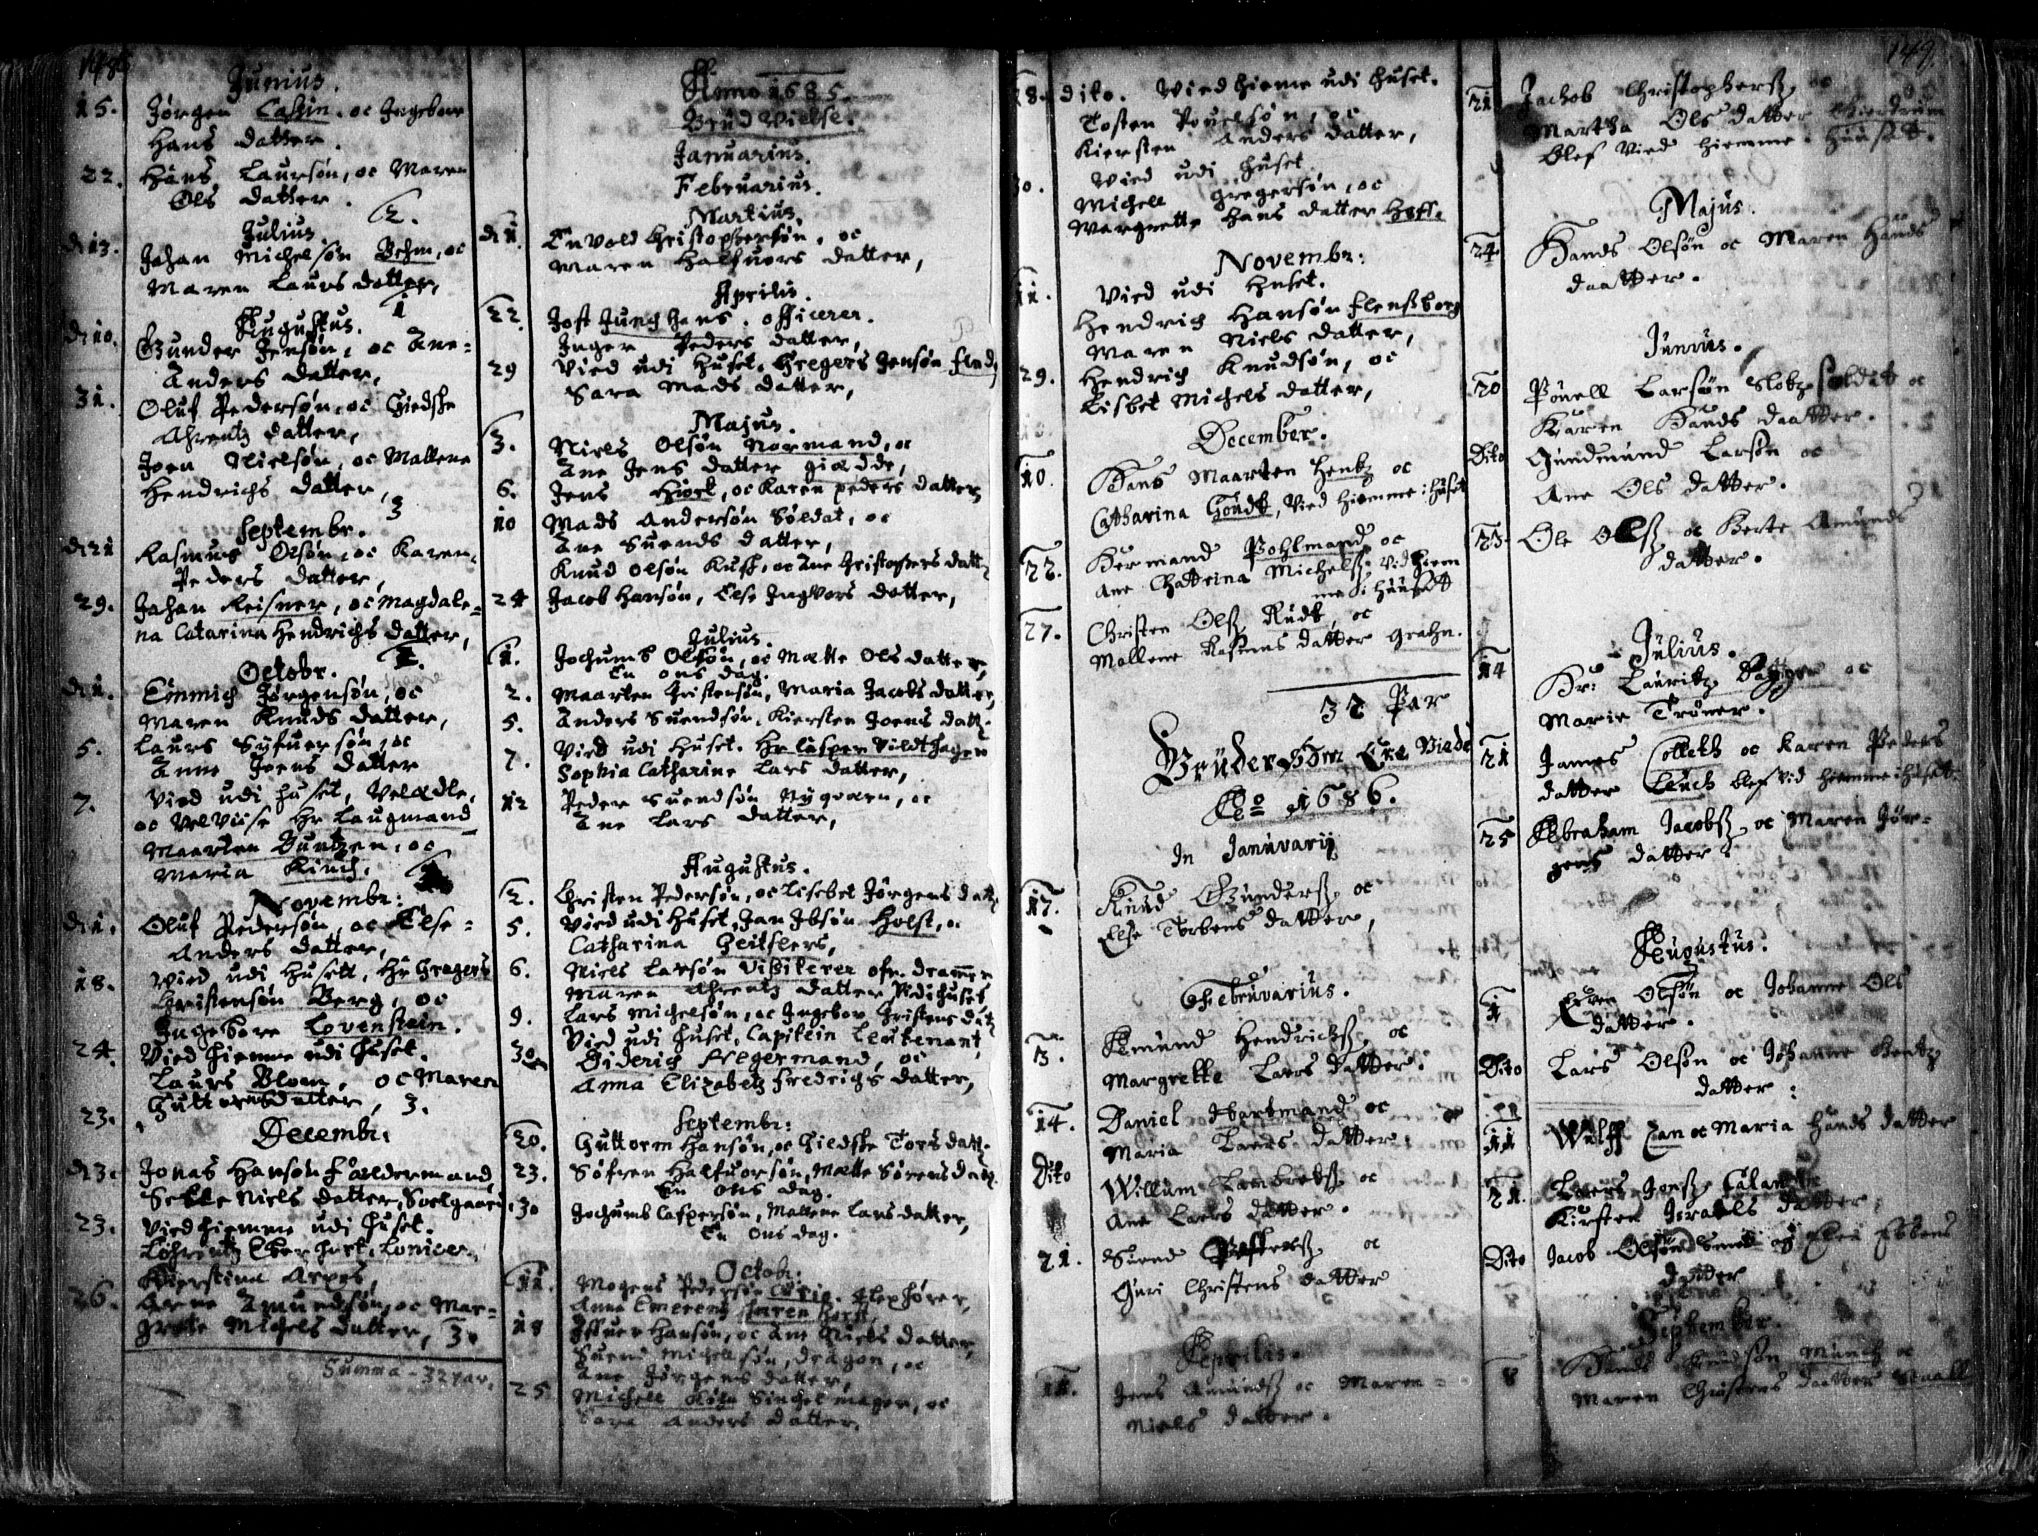 148
Junius.
15. Jørgen Cassin. oc Ingebor
Hans datter.
22. Hans Laursøn, oc Maren
Ols datter.
2.
Julius.
di 13. Johan Michelsøn Behm, oc
Maren Laurs datter,
1
Augustus.
di 10. Gunder Jensøn, oc Ane=
Anders datter,
31. Oluf Pedersøn, oc Giedske
Ahrentz datter,
Joen Nielsøn, oc Mallene
Hendrichs datter,
3
Septembr.
di 21 Rasmus Olsøn, oc Karen
Peders datter,
29. Johan Reisner, oc Magdale=
na Catarina Hendrichs datter,
2.
Octobr.
di 1. Jørgensøn, oc
Maren Knuds datter,
5. Laurs Syfuersøn, oc
Anne Joens datter
7. Vied udi huset, Velædle,
oc Velviise Hr Laugmand
Maarten Buntzen, oc
Maria Kinch.
Novembr:
di 1. Oluf Pedersøn, oc Else=
Anders datter,
18. Vied udi Husett, Hr Gregers
Christensøn Berg, oc
Ingebore Lovenstein.
24. Vied hiemme udi huset.
Laurs Bloen, oc Maren
Guttormsdatter, 3.
23.
Decembr:
di 3. Jonas Hansøn Fældermand
Niels datter, Soelgaard.
23. Vied hiemme udi huset.
Lohrentz Eberhort, Lonicer,
Kierstina Arpes,
26. Arne Amundsøn, oc Mar-
grete Michels datter, 3.
Summa - 32 par.
Anno 1685.
Brud Vielse.
Januarius.
Februarius.
Martius.
di 11. Envold Christophersøn, oc
Maren Halfuors datter,
Aprilis.
22. Jost Junghans. officerer.
Inger Peders datter,
29 Vied udi Huset. Gregers Jensøn
Sara Mads datter,
Majus.
3. Niels Olsøn Normand, oc
Ane Jens datter giædde,
6. Jens Hiort, oc Karen peders datter
10 Mads Andersøn Soldat, oc
Ane Suends datter,
Knud Olsøn Kuss, oc Ane Christophers datt
24 Jacob Hansøn, Else Inguors datter,
Julius.
1. Jochumb Olsøn, oc Mætte Ols datter,
En ons dag.
2. Maarten Christensøn, Maria Jacobs datter,
5. Anders Suendsøn, Kiersten Joens datt.
7. Vied udi Huset. Hr Casper Vildthagen
Sophia Catharine Lars datter,
12 Peder Suendsøn Nygaarn, oc
Ane Lars datter,
Augustus.
2. Christen Pedersøn, oc Lisebet Jørgens datt.
5. Vied udi Huset, Jan Ibsøn Holst, oc
Catharina Geitslers,
6. Niels Larsøn Visiterer ofr. drammen
Maren Ahrentz datter Vedi huset
9. Lars Michelsøn, oc Ingebor Christens datt
Vied udi huset. Capitein Leutenant
30 Diderich Fregermand, oc
Anna Elizabetz Fredrichs datter,
Septembr:
20. Guttorm Hansøn, oc Giedske Tors datt.
23. Søfren Halfuorsøn, Mætte Sørens datt.
En ons dag.
30 Jochumb Caspersøn, Mallene Lars datter,
En ons dag.
Octobr:
11. Mogens Pedersøn Klephører,
Anna
18 Iffuer Hansøn, oc Ane Niels datter,
Suend Michelsøn, dragon, oc
Ane Jørgens datter,
25 Michell Singelmager, oc
Sara Anders datter.
149.
28. dito. Vied hieme udi huset.
Tosten Pouelsøn, oc
Kiersten Anders datter,
Vied udi huset
30. Michell Gregersøn, oc
Margrette Hans datter Hoff.
Novembr:
11. Vied udi Huset.
Hendrich Hansøn Flensborg
Maren Niels datter,
29. Hendrich Knudsøn, oc
Lisbet Michels datter,
December.
10. Hans Maarten Hentz oc
Catharina Goudt, Vied hiemme i huset
22. Hermand Pohlmand oc
Ane Chattrina Michelss. Vid hiem
me i Huusett
27. Christen Olss Rudt, oc
Mallene Rasmus datter Grahn.
37 Par
Brüder som Ere Viede
Ao 1686.
In Januvarij
17. Knud Gunderss, oc
Else Torbens datter,
Februvarius.
3. Amund Hendrickss, oc
Margrette Laers datter.
14. Daniel Hartmand oc
Maria Laers datter.
Dito Willum Lambretss, oc
Ane Laers datter.
21. Suend oc
Guri Christens datter
Aprilis.
11. Jens Amundss oc Maren =
Niels datter.
21 Jachob Christopherss, oc
Martha Ols datter
Blef Vied hiemme. Huuset.
Majus.
24. Hands Olsøn oc Maren Hands
daatter.
Junius.
20 Pouell Larsøn Slotz soldat oc
Karen Hands daatter.
Dito Gundmund Larsøn oc
Ane Ols datter.
23. Ole Olss oc Berte Amunds
datter.
Julius.
14 Hr: Lauritz oc
Marie Trøner.
21 James Colleth oc Karen Peders
datter Leuch blef Vid hiemme i huset.
25 Abraham Jacobss, oc Maren Jør-
gens datter.
Augustus.
1 Even Olsøn oc Johanne Ols
datter.
Dito Lars Olsøn oc Johanne Bentz
datter:
11 Wulff Can oc Maria Hands datter
21. Laers Jonss, Calan
Kirsten Israels datter,
Dito Jacob Olsøn Smed og Elen Ebbens
datter
September.
8 Hands Knudsøn Munch oc
Maren Christens daatter